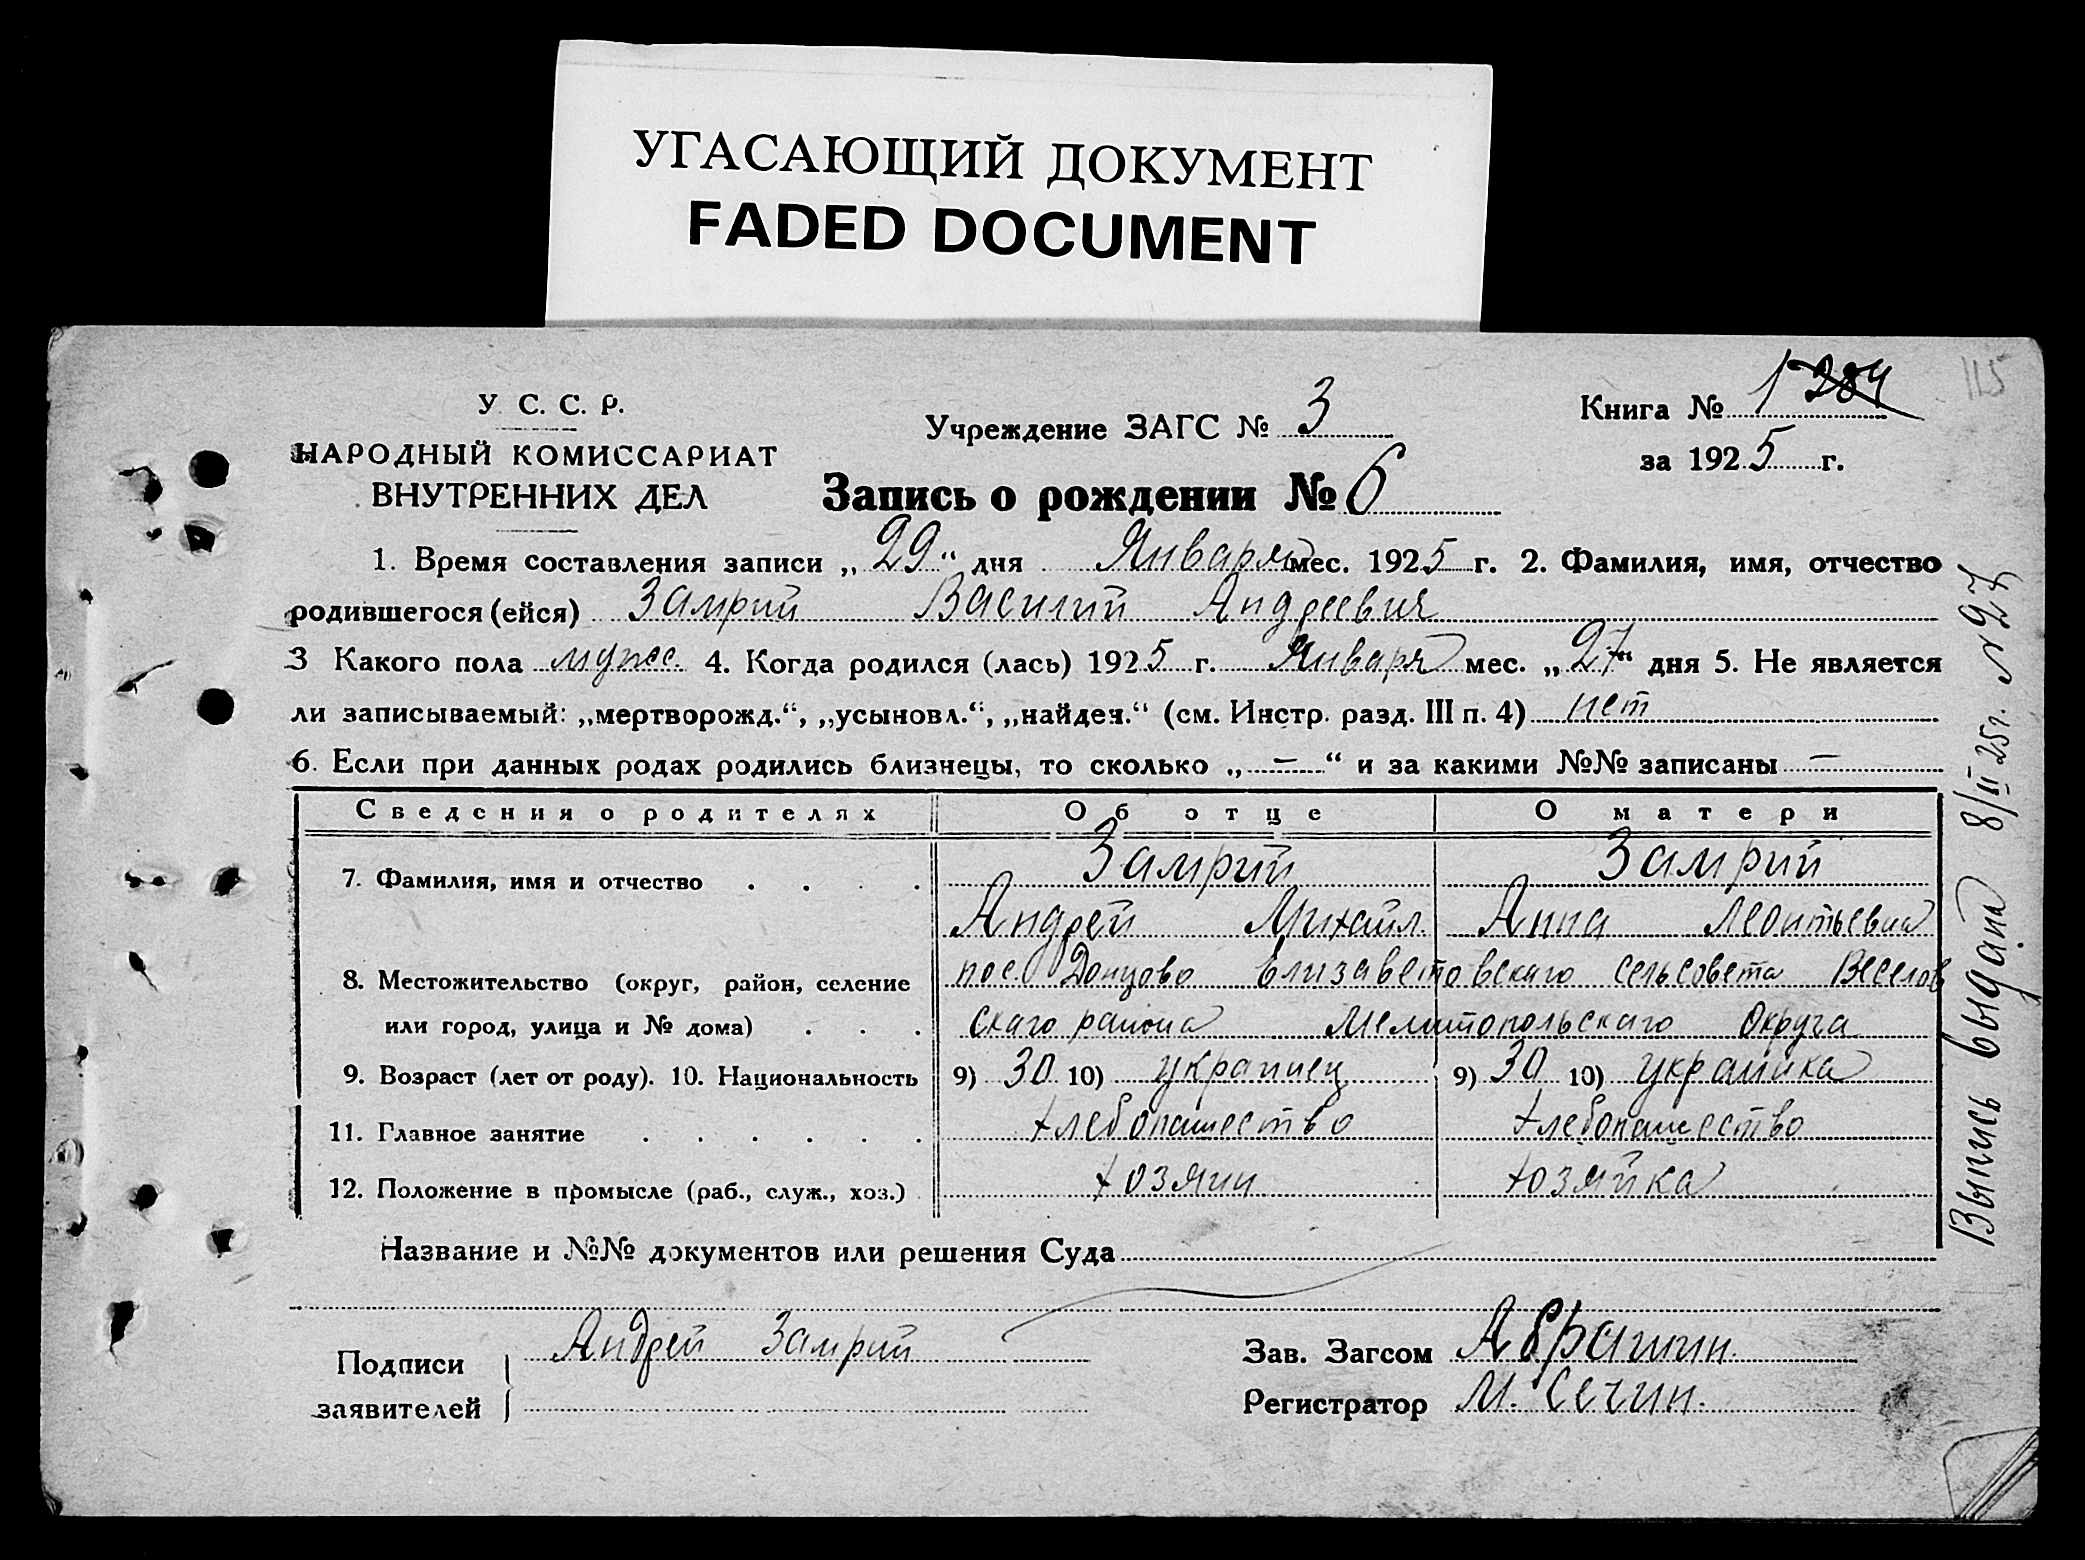 УГАСАЮЩИЙ ДОКУМЕНТ
FADED DOCUMENT
115
У. С. С. Р.
НАРОДНЫЙ КОМИССАРИАТ
ВНУТРЕННИХ ДЕЛ
Учреждение ЗАГС № 3
Книга № 1 284
за 1925 г.
Запись о рождении № 6
1. Время составления записи „29“ дня Января мес. 1925 г. 2. Фамилия, имя, отчество
родившегося (ейся) Замрий Василий Андреевич
3 Какого пола мужс. 4. Когда родился (лась) 1925 г. Января мес. „27“ дня 5. Не является
ли записываемый: „мертворожд.“, „усыновл.“, „найден.“ (см. Инстр. разд. III п. 4) нет
6. Если при данных родах родились близнецы, то сколько „—“ и за какими №№ записаны —
Сведения о родителях Об отце О матери
7. Фамилия, имя и отчество Замрий Замрий
Андрей Михайл. Анна Леонтьевна
8. Местожительство (округ, район, селение пос. Донцово Елизаветовскаго сельсовета Веселов
или город, улица и № дома) скаго района Мелитопольскаго Округа
9. Возраст (лет от роду). 10. Национальность 9) 30 10) украинец 9) 30 10) украинка
11. Главное занятие хлебопашество хлебопашество
12. Положение в промысле (раб., служ., хоз.) хозяин хозяйка
Название и №№ документов или решения Суда
Подписи Андрей Замрий
заявителей
Зав. Загсом Абрамин.
Регистратор М. Сечин.
Выпись выдана 8/II 25г. № 27